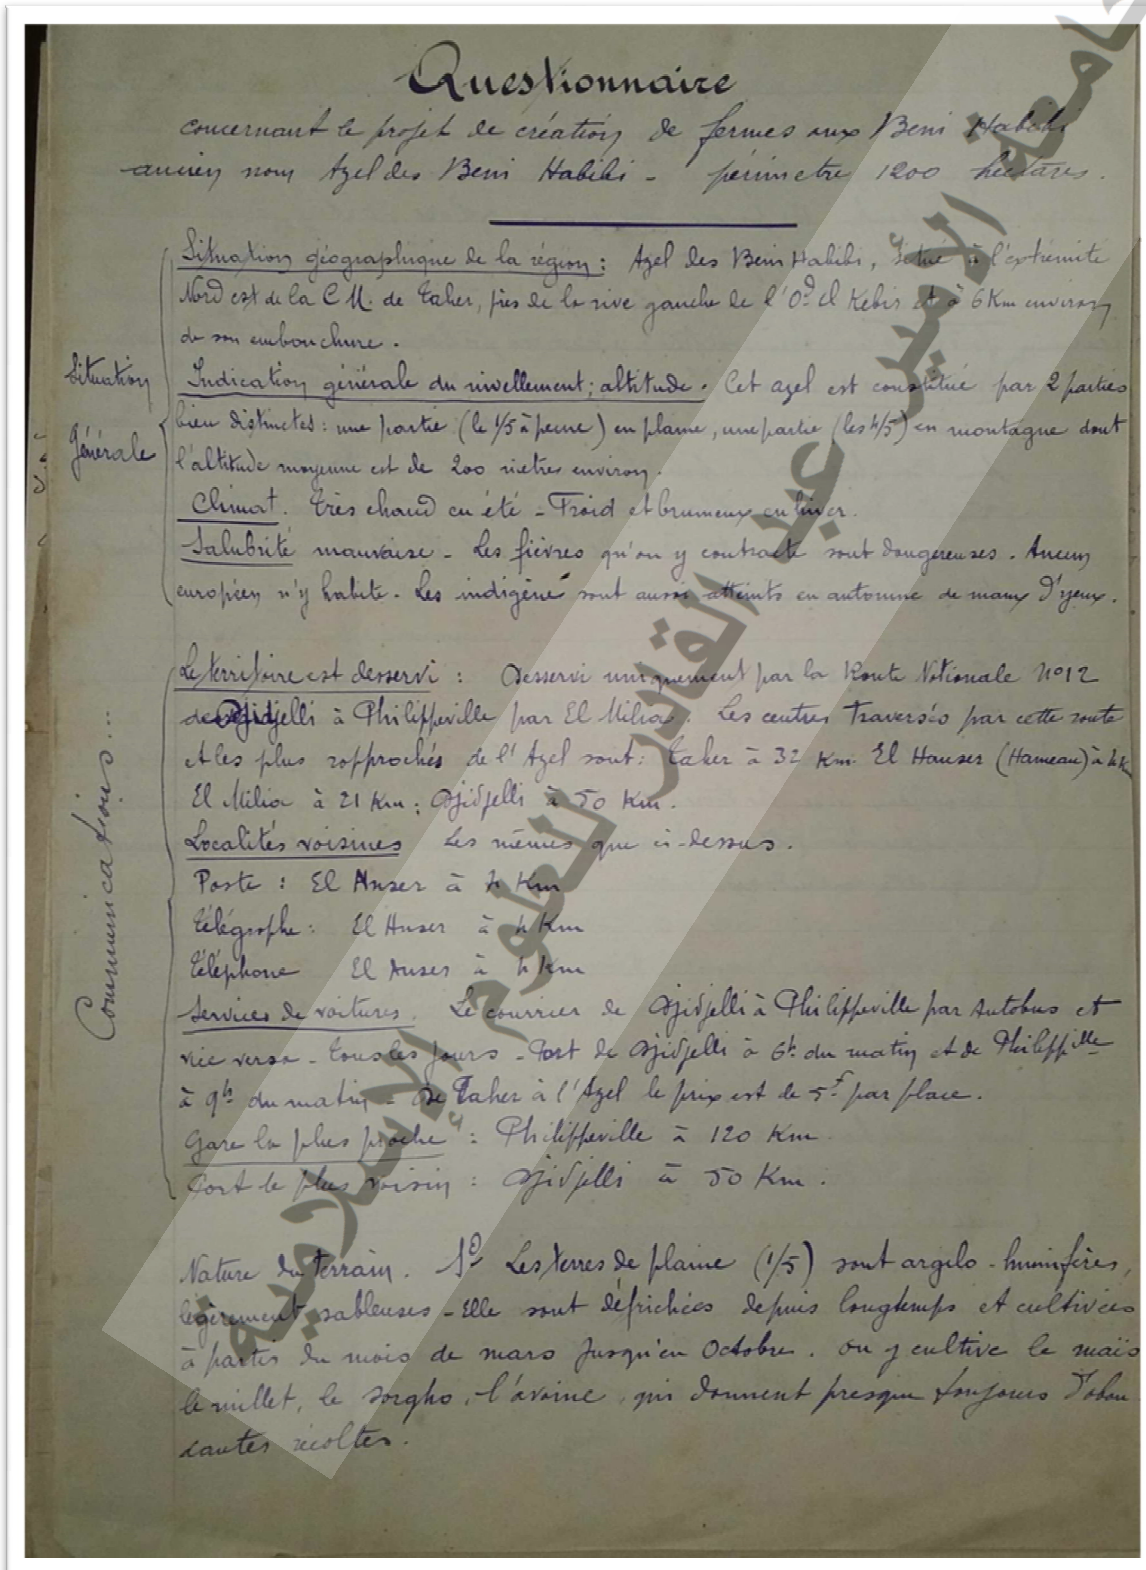 Questionnaire
concernant le projet de création de fermes aux Beni Habibi
ancien nom Azel des Beni Habibi - périmetre 1200 hectares.
Situation
Générale
Situation géographique de la région : Azel des Beni Habibi, Situé à l'extrémité
Nord est de la C M. de Taher, près de la rive gauche de l'Oᵈ El Kebir et à 6 Km environ
de son embouchure.
Indication générale du nivellement ; altitude. Cet azel est constitué par 2 parties
bien distinctes : une partie (le 1/5 à peine) en plaine, une partie (les 4/5) en montagne dont
l'altitude moyenne est de 200 mètres environ.
Climat. Très chaud en été - Froid et brumeux en hiver.
Salubrité mauvaise - Les fièvres qu'on y contracte sont dangereuses. Aucun
européen n'y habite. Les indigène sont aussi atteints en automne de maux d'yeux.
Communications...
Le territoire est desservi : Desservi uniquement par la Route Nationale N° 12
de Djidjelli à Philippeville par El Milia. Les centres traversés par cette route
et les plus rapprochés de l'Azel sont : Taher à 32 Km. El Hanser (Hameau) à 4 Km
El Milia à 21 Km ; Djidjelli à 50 Km.
Localités voisines Les mêmes que ci-dessus.
Poste : El Anser à 4 Km
Télégraphe : El Anser à 4 Km
Téléphone El Anser à 4 Km
Services de voitures. Le courrier de Djidjelli à Philippeville par Autobus et
vice versa - Tous les jours - Part de Djidjelli à 6ʰ du matin et de Philippeville
à 9ʰ du matin - De Taher à l'Azel le prix est de 5ᶠ par place.
Gare la plus proche : Philippeville à 120 Km
Port le plus voisin : Djidjelli à 50 Km.
Nature du terrain. 1° Les terres de plaine (1/5) sont argilo-humifères,
légèrement sableuses - Elle sont défrichées depuis longtemps et cultivées
à partir du mois de mars jusqu'en Octobre. On y cultive le maïs
le millet, le sorgho, l'avoine, qui donnent presque toujours d'abon
dantes récoltes.
جامعة الأمير عبد القادر للعلوم الإسلامية